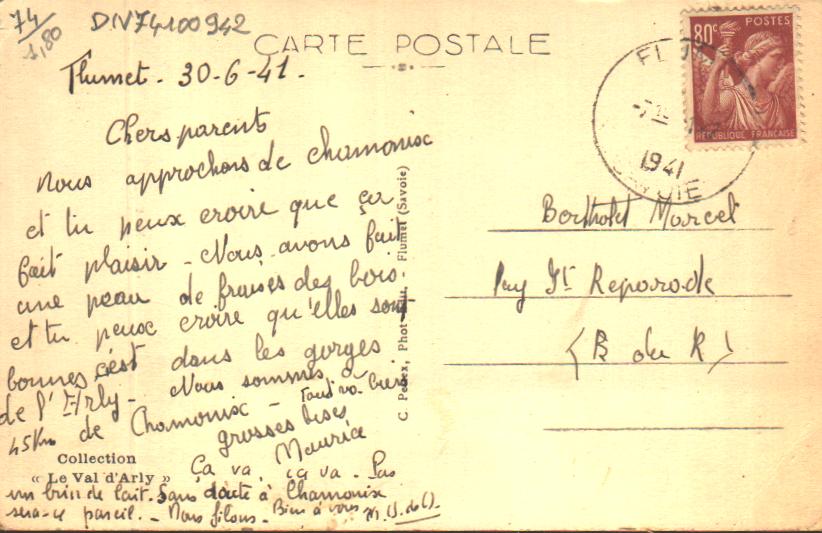 74
1,80
DIV74100942
CARTE POSTALE
Flumet - 30-6-41.
Chers parents
Nous approchons de chamonix
et tu peux croire que ça
fait plaisir - Nous avons fait
une peau de fraises des bois.
et tu peux croire qu'elles sont
bonnes c'est dans les gorges
de l'Arly - Nous sommes à
45 Km de Chamonix - Tout va bien
grosses bises
Maurice
Ça va, ça va - Pas
un brin de lait. Sans doute à Chamonix
sera-ce pareil. - Nous filons - Bien à vous
Collection
« Le Val d'Arly »
Phot-Edit, Flumet (Savoie)
80c POSTES
REPUBLIQUE FRANÇAISE
1941
Berthold Marcel
Puy St Reparade
(B du R)